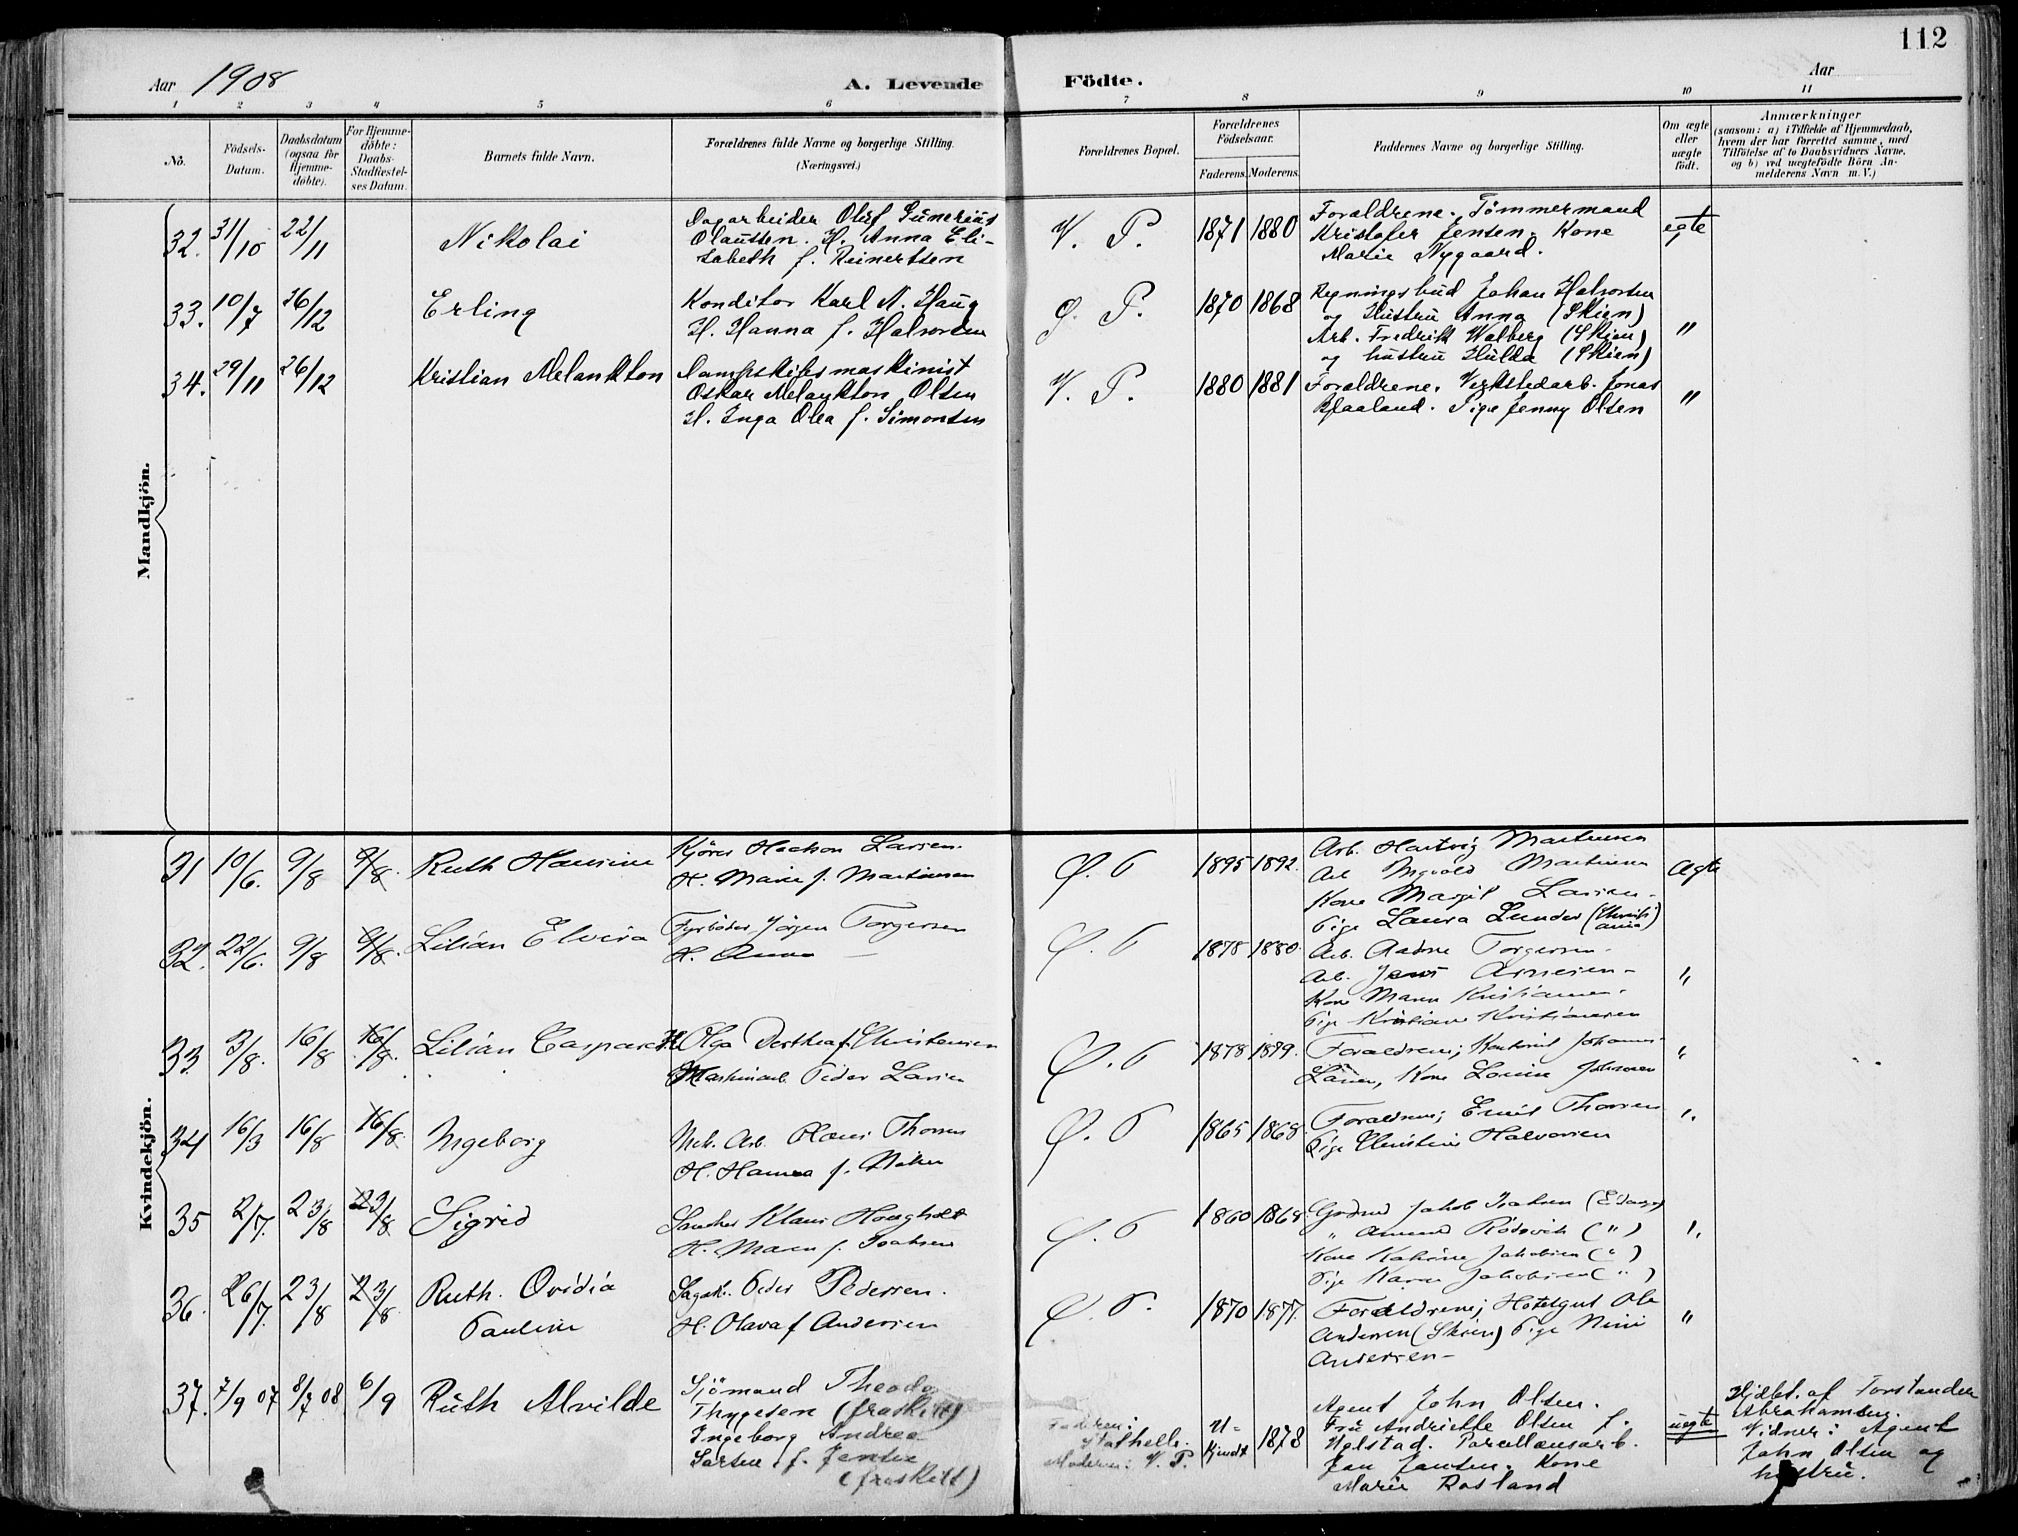 112
Aar 1908
A. Levende Födte.
Aar
1 2 3 4 5 6 7 8 9 10 11
No.
Födsels-
Datum.
Daabsdatum
(ogsaa for
Hjemme-
döbte).
For Hjemme-
döbte:
Daabs-
Stadfæstel-
ses Datum.
Barnets fulde Navn.
Forældrenes fulde Navne og borgerlige Stilling.
(Næringsvei.)
Forældrenes Bopæl.
Forældrenes
Födselsaar.
Faderens. Moderens.
Faddernes Navne og borgerlige Stilling.
Om ægte
eller
uægte
födt.
Anmærkninger
(saasom: a) i Tilfælde af Hjemmedaab,
hvem der har forrettet samme, med
Tilföielse af to Daabsvidners Navne,
og b) ved uægtefödte Börn An-
melderens Navn m. V.)
Mandkjön.
32. 31/10 22/11 Nikolai
Dagarbeider Olef Gunerius
Olaussen. H. Anna Eli-
sabeth f. Reinertsen
V. P. 1871 1880
Forældrene. Tömmermand
Kristofer Jensen. Kone
Marie Nygaard.
egte
33. 10/7 26/12 Erling
Konditor Karl A. Haug
H. Hanna f. Halvorsen
Ø. P. 1870 1868
Regningsbud Johan Halvorsen
og Hustru Anna (Skien)
Arb. Fredrik Walberg (Skien)
og hustru Hulda (Skien)
"
34. 29/11 26/12 Kristian Melankton
Dampskibsmaskinist
Oskar Melankton Olsen
H. Inga Olea f. Simonsen
V. P. 1880 1881
Forældrene. Verkstedarb. Jonas
Blaaland. Pige Jenny Olsen
"
Kvindekjön.
31 10/6. 9/8 9/8. Ruth Hansine
Kjörer Larsen.
H. Marie f. Martinsen
Ø. P 1895 1892.
Arb. Hartvig Martinsen
Arb Ingvald Martinsen
Kone Margit Larsen.
Pige Laura Lunder (Christi
ania)
Ægte
32. 22/6. 9/8 9/8. Lilian Elvira
Fyrböder Jörgen Torgersen
H. Anna —
Ø. P 1878 1880.
Arb. Torgersen.
Arb. Jens Arnesen —
Kone Maren Kristiansen.
Pige Kristiane Kristiansen
"
33. 3/8. 16/8 16/8. Lilian Caspara
H. Olga Dorthea f. Christensen
Maskinarb. Peder Larsen
Ø. P 1878 1879.
Forældrene; Johannes
Larsen, Kone Lovise Johnsen
"
34 16/3 16/8 16/8. Ingeborg
Mek. Arb. Thorsen
H. Hanna f.
Ø. P 1865 1868.
Forældrene; Emil Thorsen
Pige Christine Halvorsen
"
35 2/7. 23/8 23/8 Sigrid
Klaus
H. Maren f. Isaksen
Ø. P 1860 1868
Grdmd Jakob Isaksen (Eidanger)
" Amund (")
Kone Katrine Jakobsen (")
Pige Karen Jakobsen (")
"
36. 26/7. 23/8 23/8. Ruth. Ovidia
Pauline
Sagarb. Peder Pedersen.
H. Olava f Andersen
Ø. P. 1870 1877.
Forældrene; Hotelgut Ole
Andersen (Skien) Pige Nini
Andersen —
"
37. 7/9 07 8/7 08 6/9 Ruth Alvilde
Sjömand Theodor
Thygesen (fraskilt)
Ingeborg Andrea
Larsen f. Jensen
(fraskilt)
Faderen:
Stathelle.
Moderen: V. P.
U-
kjendt 1878
Agent John Olsen.
Fru Andriette Olsen f.
Helstad. Porcellænsarb.
Jan Jansen. Kone
Marie Rosland
uegte
Hjdbt. af Forstander
Abrahamsen.
Vidner: Agent
John Olsen og
hustru.